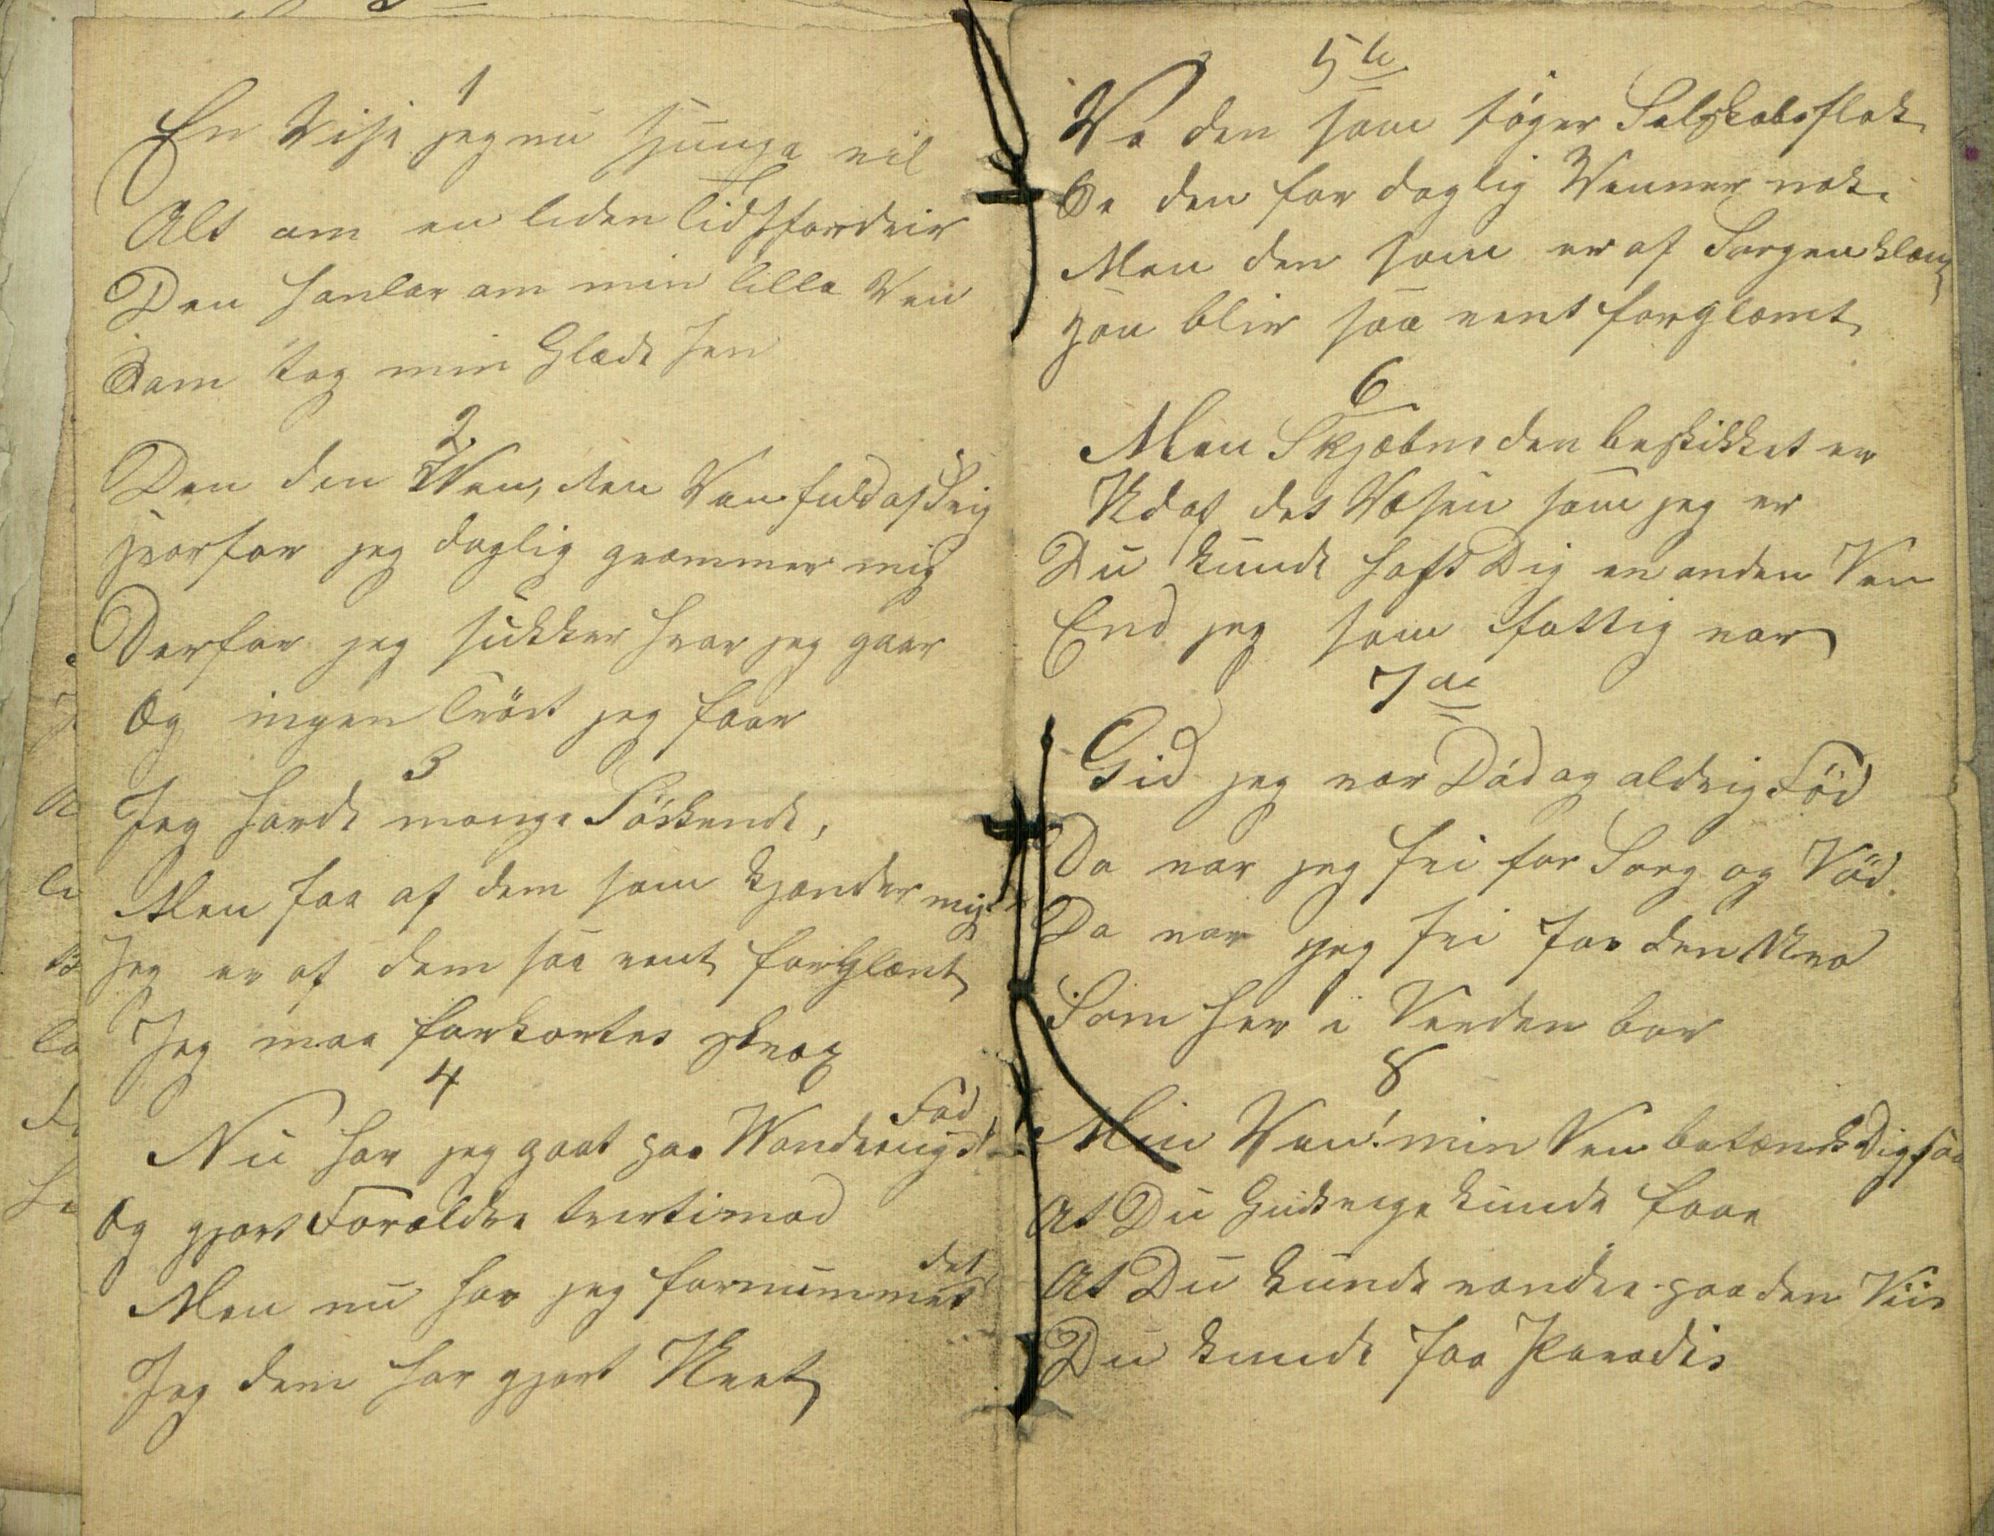 1
En Vise jeg nu sjunge vil
Alt om en liden Tidsfordriv
Den handlar om min lille Ven
Som tog min Glæde hen
2
Den den Ven, den Ven fuld af Svig
hvorfor jeg daglig græmmer mig
Derfor jeg sukker hvor jeg gaar
Og ingen Tröst jeg faar
3
Jeg havde mange Söskende,
Men faa af dem som kjender mig
Jeg er af dem saa rent forglemt
Jeg maa forkortes
4
Nu har jeg gaat paa Vanderings
Föd
Og gjort Forældre tvertimod
Men nu har jeg fornummet
det
Jeg dem har gjort Uret
5te
Ve den som söger Selskabsflok
Se den faar daglig Venner nok
Men den som er af Sorgen klemt
han blir saa rent forglemt
6
Men Skjæbne den beskikket er
Udaf det Væsen som jeg er
Du kunde haft Dig en anden Ven
End jeg som fattig var
7de
Gid jeg var Död og aldrig Föd
Da var jeg fri for Sorg og Nöd
Da var jeg fri for den Uro
Som her i Verden bor
8
Min Ven! min Ven betænk Dig saa
At Du Guds rige kunde faae
At Du kunde vandre paa den Viis
Du kunde faa Paradis